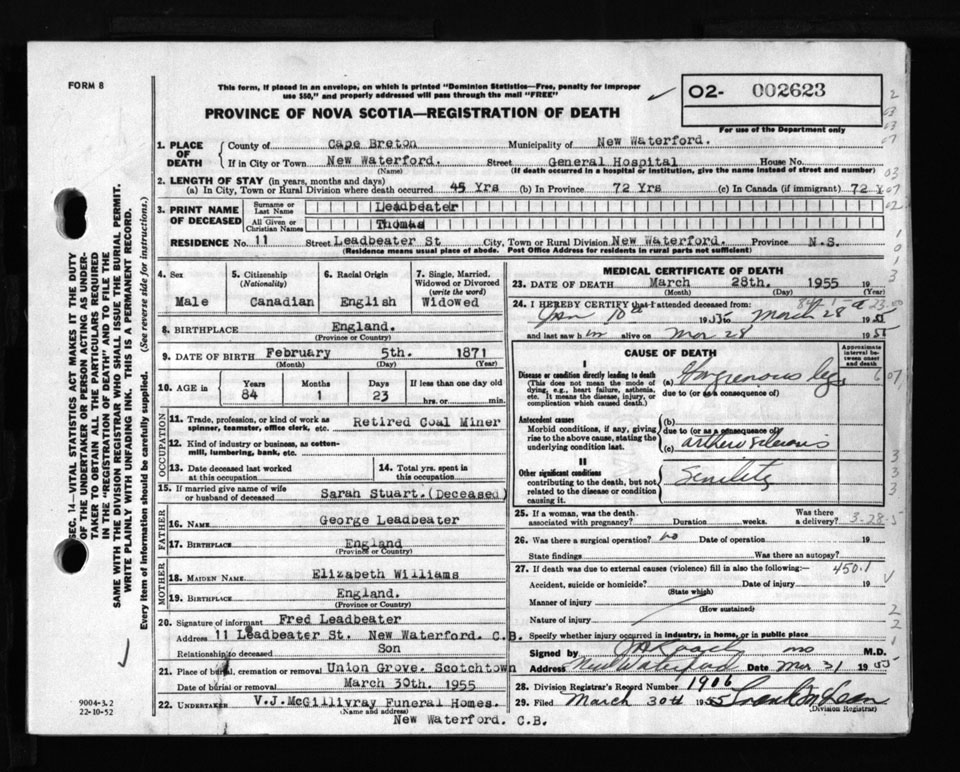 FORM 8
This form, if placed in an envelope, on which is printed "Dominion Statistics—Free, penalty for improper
use $50," and properly addressed will pass through the mail "FREE"
PROVINCE OF NOVA SCOTIA—REGISTRATION OF DEATH
O2- 002623
For use of the Department only
1. PLACE OF DEATH
County of Cape Breton Municipality of New Waterford.
If in City or Town New Waterford. Street General Hospital House No.
(Name) (If death occurred in a hospital or institution, give the name instead of street and number)
2. LENGTH OF STAY (in years, months and days)
(a) In City, Town or Rural Division where death occurred 45 Yrs (b) In Province 72 Yrs (c) In Canada (if immigrant) 72 Y
3. PRINT NAME OF DECEASED
Surname or Last Name Leadbeater
All Given or Christian Names Thomas
RESIDENCE No. 11 Street Leadbeater St City, Town or Rural Division New Waterford. Province N.S.
(Residence means usual place of abode. Post Office Address for residents in rural parts not sufficient)
4. Sex
Male
5. Citizenship (Nationality)
Canadian
6. Racial Origin
English
7. Single, Married, Widowed or Divorced (write the word)
Widowed
8. BIRTHPLACE England.
(Province or Country)
9. DATE OF BIRTH February 5th. 1871
(Month) (Day) (Year)
10. AGE in Years Months Days If less than one day old
84 1 23 hrs. or min.
OCCUPATION
11. Trade, profession, or kind of work as spinner, teamster, office clerk, etc. Retired Coal Miner
12. Kind of industry or business, as cotton-mill, lumbering, bank, etc.
13. Date deceased last worked at this occupation
14. Total yrs. spent in this occupation
15. If married give name of wife or husband of deceased Sarah Stuart.(Deceased)
FATHER
16. NAME George Leadbeater
17. BIRTHPLACE England
(Province or Country)
MOTHER
18. MAIDEN NAME Elizabeth Williams
19. BIRTHPLACE England.
(Province or Country)
20. Signature of informant Fred Leadbeater
Address 11 Leadbeater St. New Waterford. C.B.
Relationship to deceased Son
21. Place of burial, cremation or removal Union Grove. Scotchtown
Date of burial or removal March 30th. 1955
22. UNDERTAKER V.J.McGillivray Funeral Homes.
(Name and address)
New Waterford. C.B.
MEDICAL CERTIFICATE OF DEATH
23. DATE OF DEATH March 28th. 1955 19
(Month) (Day) (Year)
24. I HEREBY CERTIFY that I attended deceased from:
Jan 10th 1955 to March 28 1955
and last saw him alive on Mar 28 1955
CAUSE OF DEATH
Approximate interval between onset and death
I
Disease or condition directly leading to death
(This does not mean the mode of dying, e.g., heart failure, asthenia, etc. It means the disease, injury, or complication which caused death.)
(a) Gangrenous legs
due to (or as a consequence of)
Antecedent causes
Morbid conditions, if any, giving rise to the above cause, stating the underlying condition last.
(b)
due to (or as a consequence of)
(c) arthero sclerosis
II
Other significant conditions
contributing to the death, but not related to the disease or condition causing it.
Senility
25. If a woman, was the death associated with pregnancy? Duration weeks. Was there a delivery? 3-28-5
26. Was there a surgical operation? no Date of operation 19
State findings Was there an autopsy?
27. If death was due to external causes (violence) fill in also the following:— 450.1
Accident, suicide or homicide? Date of injury 19
(State which)
Manner of injury
(How sustained)
Nature of injury
Specify whether injury occurred in industry, in home, or in public place
Signed by MD M.D.
Address New Waterford Date Mar 31 1955
28. Division Registrar's Record Number 1906
29. Filed March 30th 1955
(Division Registrar)
SEC. 14—VITAL STATISTICS ACT MAKES IT THE DUTY
OF THE UNDERTAKER OR PERSON ACTING AS UNDER-
TAKER TO OBTAIN ALL THE PARTICULARS REQUIRED
IN THE "REGISTRATION OF DEATH" AND TO FILE THE
SAME WITH THE DIVISION REGISTRAR WHO SHALL ISSUE THE BURIAL PERMIT.
WRITE PLAINLY WITH UNFADING INK. THIS IS A PERMANENT RECORD.
Every item of information should be carefully supplied. (See reverse side for instructions.)
9004-3.2
22-10-52